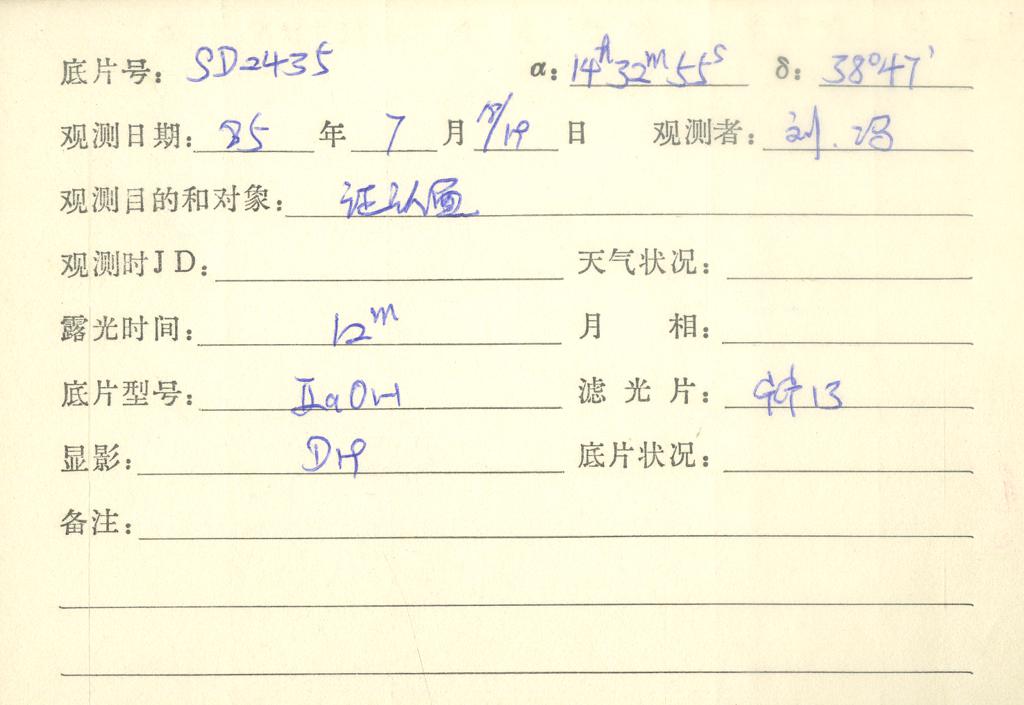 底片号: SD2435 α: 14h32m55s δ: 38°47'
观测日期: 85 年 7 月 18/19 日 观测者: 刘. 冯
观测目的和对象: 证认图
观测时JD: 天气状况:
露光时间: 12m 月 相:
底片型号: IIaO 滤光片: 13
显影: D19 底片状况:
备注: